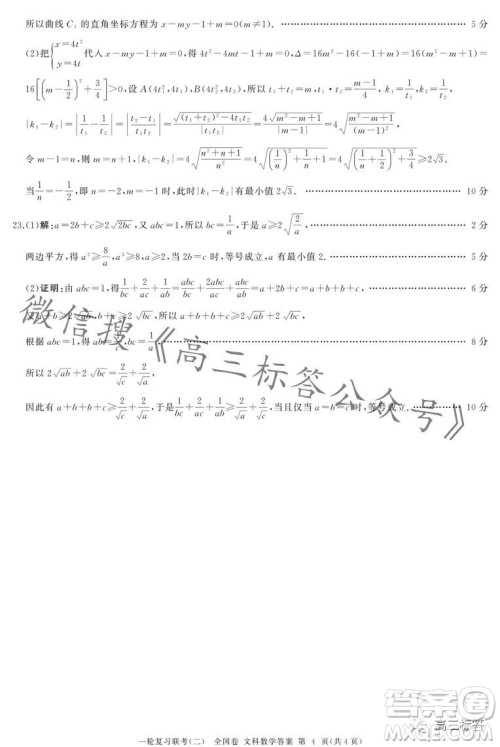 所以曲线 C₁ 的直角坐标方程为 x－my－1＋m＝0(m≠1). 5 分
(2)把{x＝4t² y＝4t 代入 x－my－1＋m＝0，得 4t²－4mt－1＋m＝0，Δ＝16m²－16(m－1)＝16(m²－m＋1)＝
16[(m－1/2)²＋3/4]＞0，设 A(4t₁²,4t₁)，B(4t₂²,4t₂)，所以 t₁＋t₂＝m，t₁·t₂＝(m－1)/4，k₁＝1/t₁，k₂＝1/t₂，
|k₁－k₂|＝|1/t₁－1/t₂|＝|(t₂－t₁)/(t₁t₂)|＝√((t₁＋t₂)²－4t₁t₂)/|t₁t₂|＝4√((m²－m＋1)/(m－1)²)，
令 m－1＝n，则 m＝n＋1，|k₁－k₂|＝4√((n²＋n＋1)/n²)＝4√((1/n)²＋1/n＋1)＝4√((1/n＋1/2)²＋3/4)≥2√3.
当1/n＝－1/2，即 n＝－2，m＝－1 时，此时|k₁－k₂|有最小值 2√3. 10 分
23.(1)解：a＝2b＋c≥2√(2bc)，又 abc＝1，所以 bc＝1/a，于是 a≥2√(2/a). 2 分
两边平方，得 a²≥8/a，a³≥8，a≥2，当 2b＝c 时，等号成立，a 有最小值 2. 5 分
(2)证明：由 abc＝1，得 1/bc＋2/ac＋1/ab＝abc/bc＋2abc/ac＋abc/ab＝a＋2b＋c， 6 分
根据 abc＝1，得 8 分
所以 2√(ab)＋2√(bc)≥2/√c＋2/√a.
因此有 a＋b＋b＋c≥2/√c＋2/√a，于是 1/bc＋2/ac＋1/ab≥2/√c＋2/√a，当且仅当 a＝b＝c 时，等号成立. 10 分
微信搜《高三标答公众号》
一轮复习联考(二) 全国卷 文科数学答案 第 4 页(共 4 页)
高三标答